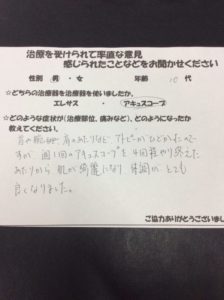 治療を受けられて率直な意見
感じられたことなどをお聞かせください
性別 男・女 年齢 10代
☆どちらの治療器を治療器を使いましたか。
エレサス ・ アキュスコープ
☆どのような症状が(治療部位、痛みなど)、どのようになったか
教えてください。
首の 肩のあたりなど アトピーがひどかったので
すが 週1回のアキュスコープを4回程やり終えた
あたりから 肌が綺麗になり 体調が とても
良くなりました。
ご協力ありがとうございまし